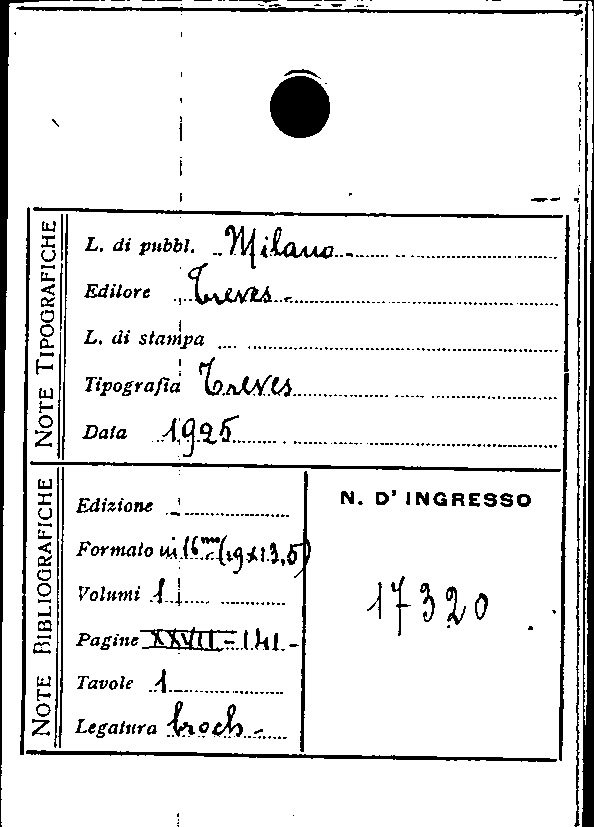 NOTE TIPOGRAFICHE
L. di pubbl. Milano
Editore Treves
L. di stampa
Tipografia Treves
Data 1925
NOTE BIBLIOGRAFICHE
Edizione
Formato in 16mo (19x13,5)
Volumi 1
Pagine XXVII-141
Tavole 1
Legatura broch.
N. D' INGRESSO
17320